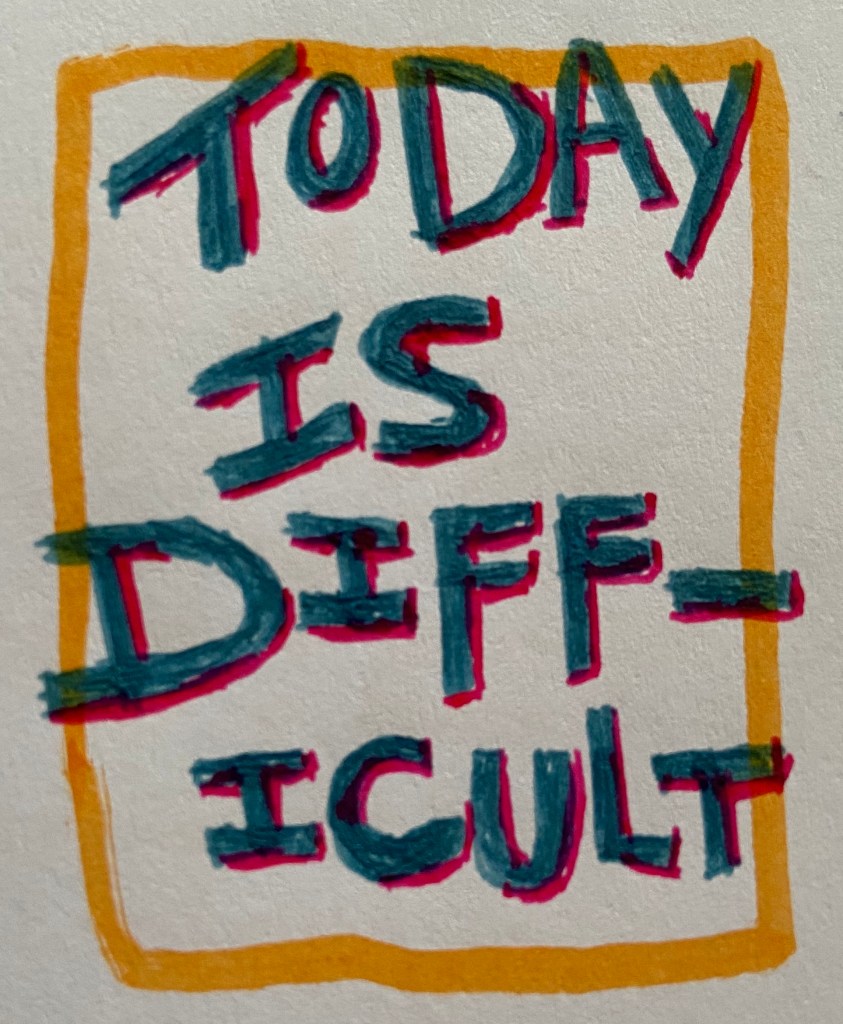 TODAY
IS
DIFF-
ICULT